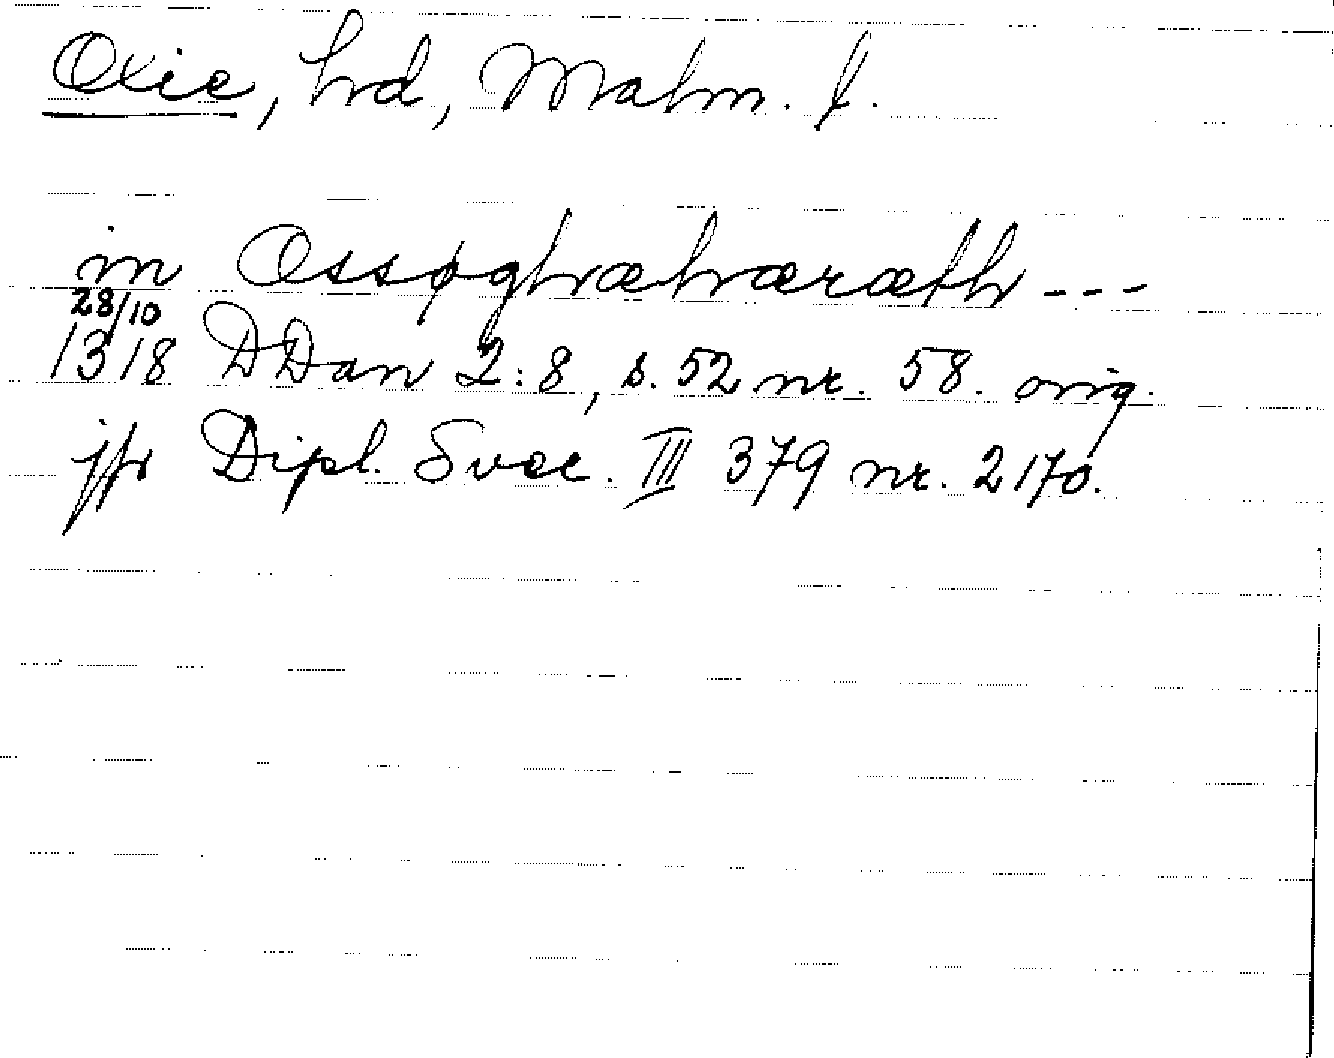 Oxie, hd, Malm. l.
in Ossøghæhæræth ---
28/10
1318 DDan 2:8, s. 52 nr. 58. orig.
jfr Dipl. Svec. III 379 nr. 2170.